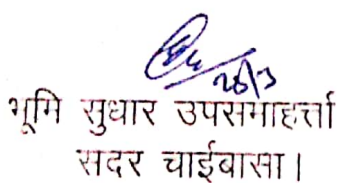 28/3
भूमि सुधार उपसमाहर्त्ता
सदर चाईबासा।